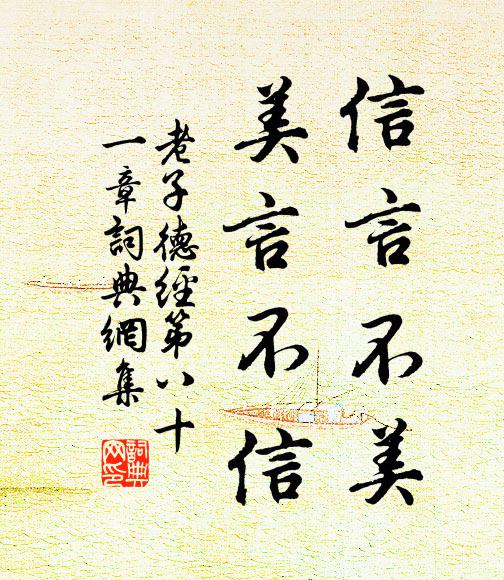 信言不美
美言不信
老子德經第八十
一章詞典網集
詞典
网印